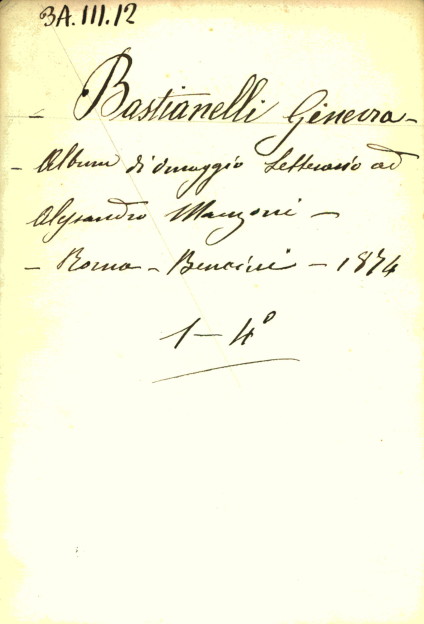 3A.III.12
- Bastianelli Ginevra -
- Album di omaggio letterario ad
Alessandro Manzoni -
- Roma - Bencini - 1874
1 - 4º